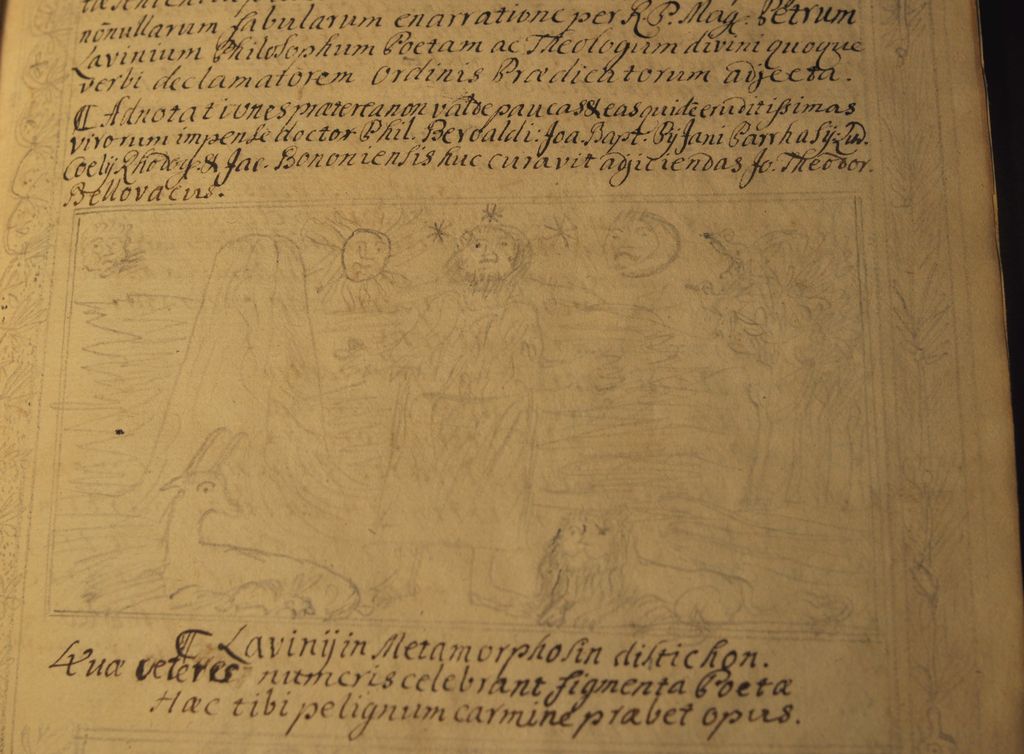 nōnullarum fabularum enarratione per R. P. Mag: Petrum
Lavinium Philosophum Poetam ac Theologum divini quoque
verbi declamatorem Ordinis Prædicatorum adjecta.
¶ Adnotationes præterea non valde paucas & eas quidē eruditissimas
virorum impense doctor Phil. Beroaldi: Joa. Bapt. Pij Jani Parrhasij Lud.
Coelij Rhodog: & Jac. Bononiensis huc curavit adjiciendas Jo. Theodor.
Bellovacus.
¶ Lavinij in Metamorphosin distichon.
Quæ veteres numeris celebrant figmenta Poetæ
Hæc tibi pelignum carmine præbet opus.